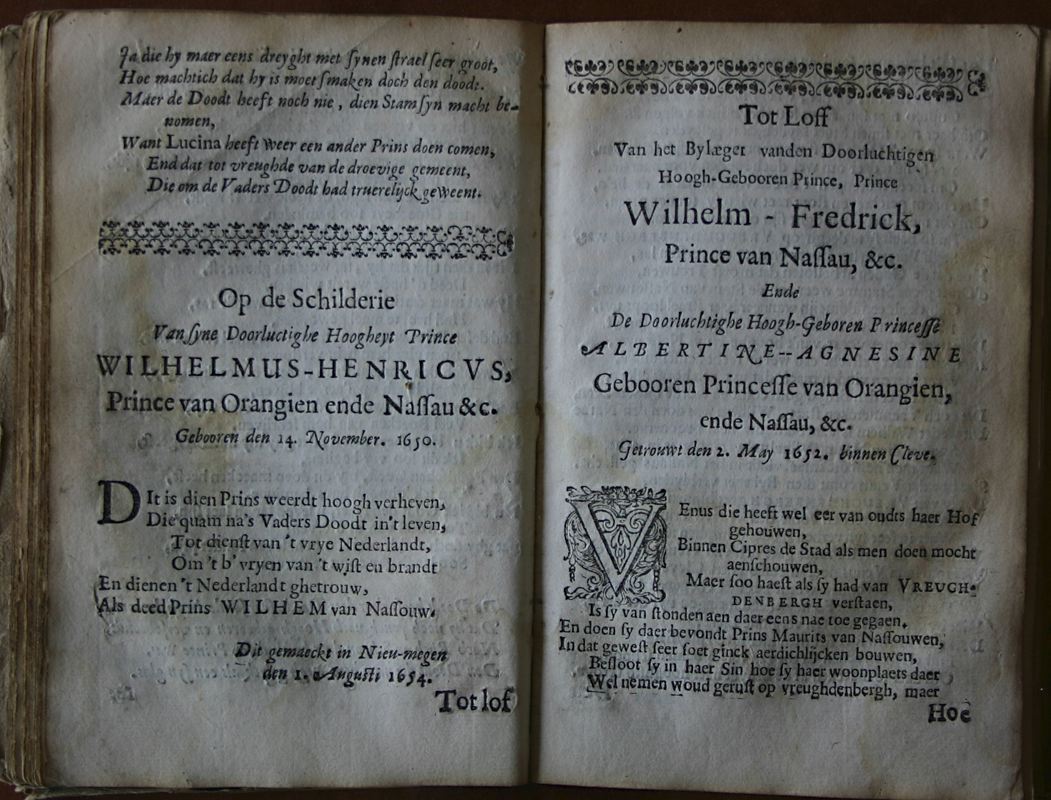 Ja die hy maer eens dreyght met synen strael seer groot,
Hoe machtich dat hy is moet smaken doch den doodt.
Maer de Doodt heeft noch nie, dien Stam syn macht be-
nomen,
Want Lucina heeft weer een ander Prins doen comen,
End dat tot vreughde van de droevige gemeent,
Die om de Vaders Doodt had truerelijck geweent.
Op de Schilderie
Van syne Doorluctighe Hoogheyt Prince
WILHELMUS-HENRICVS,
Prince van Orangien ende Nassau &c.
Gebooren den 14. November. 1650.
DIt is dien Prins weerdt hoogh verheven,
Die quam na's Vaders Doodt in't leven,
Tot dienst van 't vrye Nederlandt,
Om't b'vryen van 't wist en brandt
En dienen 't Nederlandt ghetrouw,
Als deed Prins WILHEM van Nassouw.
Dit gemaeckt in Nieu-megen
den 1. Augusti 1654.
Tot lof
Tot Loff
Van het Bylæger vanden Doorluchtigen
Hoogh-Gebooren Prince, Prince
Wilhelm - Fredrick,
Prince van Nassau, &c.
Ende
De Doorluchtighe Hoogh-Geboren Princesse
ALBERTINE--AGNESINE
Gebooren Princesse van Orangien,
ende Nassau, &c.
Getrouwt den 2. May 1652. binnen Cleve.
VEnus die heeft wel eer van oudts haer Hof
gehouwen,
Binnen Cipres de Stad als men doen mocht
aenschouwen,
Maer soo haest als sy had van VREUGH-
DENBERGH verstaen,
Is sy van stonden aen daer eens nae toe gegaen,
En doen sy daer bevondt Prins Maurits van Nassouwen,
In dat gewest seer soet ginck aerdichlijcken bouwen,
Besloot sy in haer Sin hoe sy haer woonplaets daer
Wel nemen woud gerust op vreughdenbergh, maer
Hoe